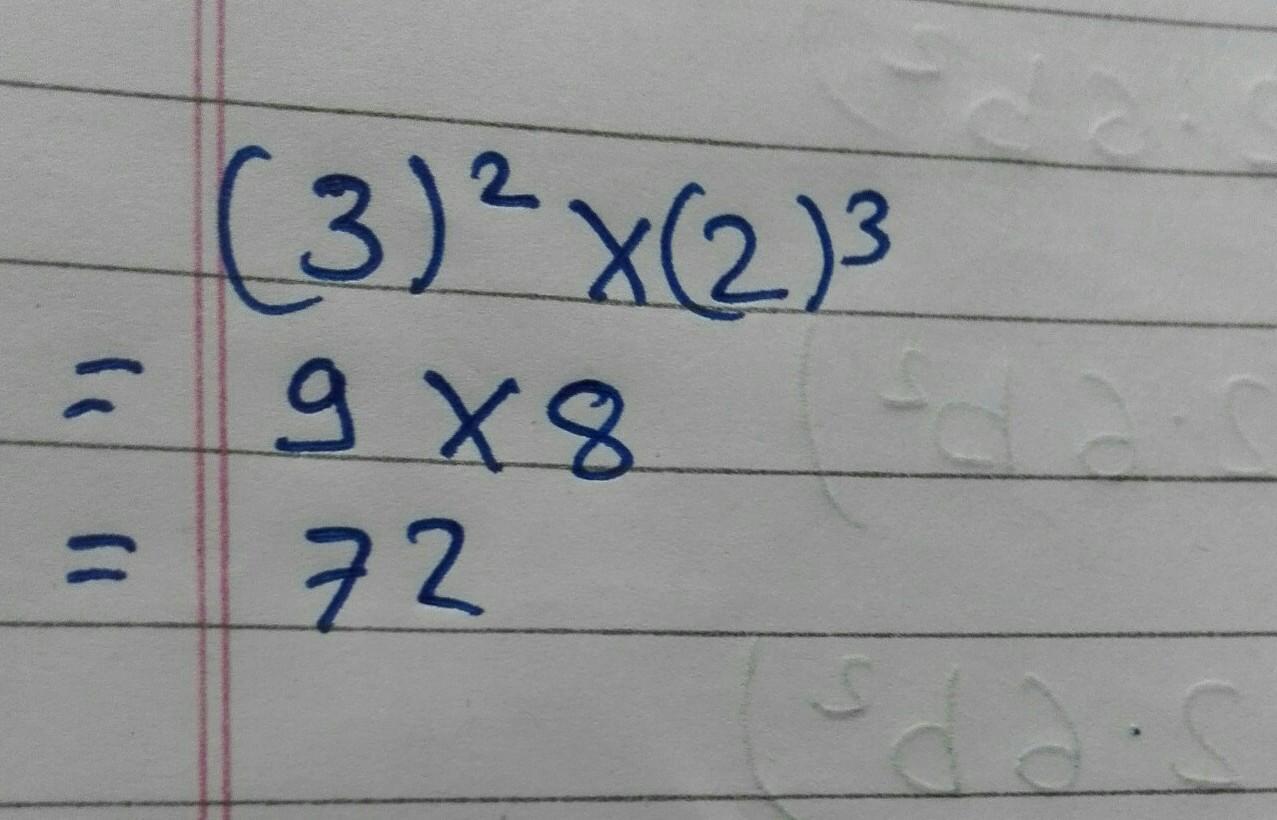 (3)² ×(2)³
= 9 × 8
= 72